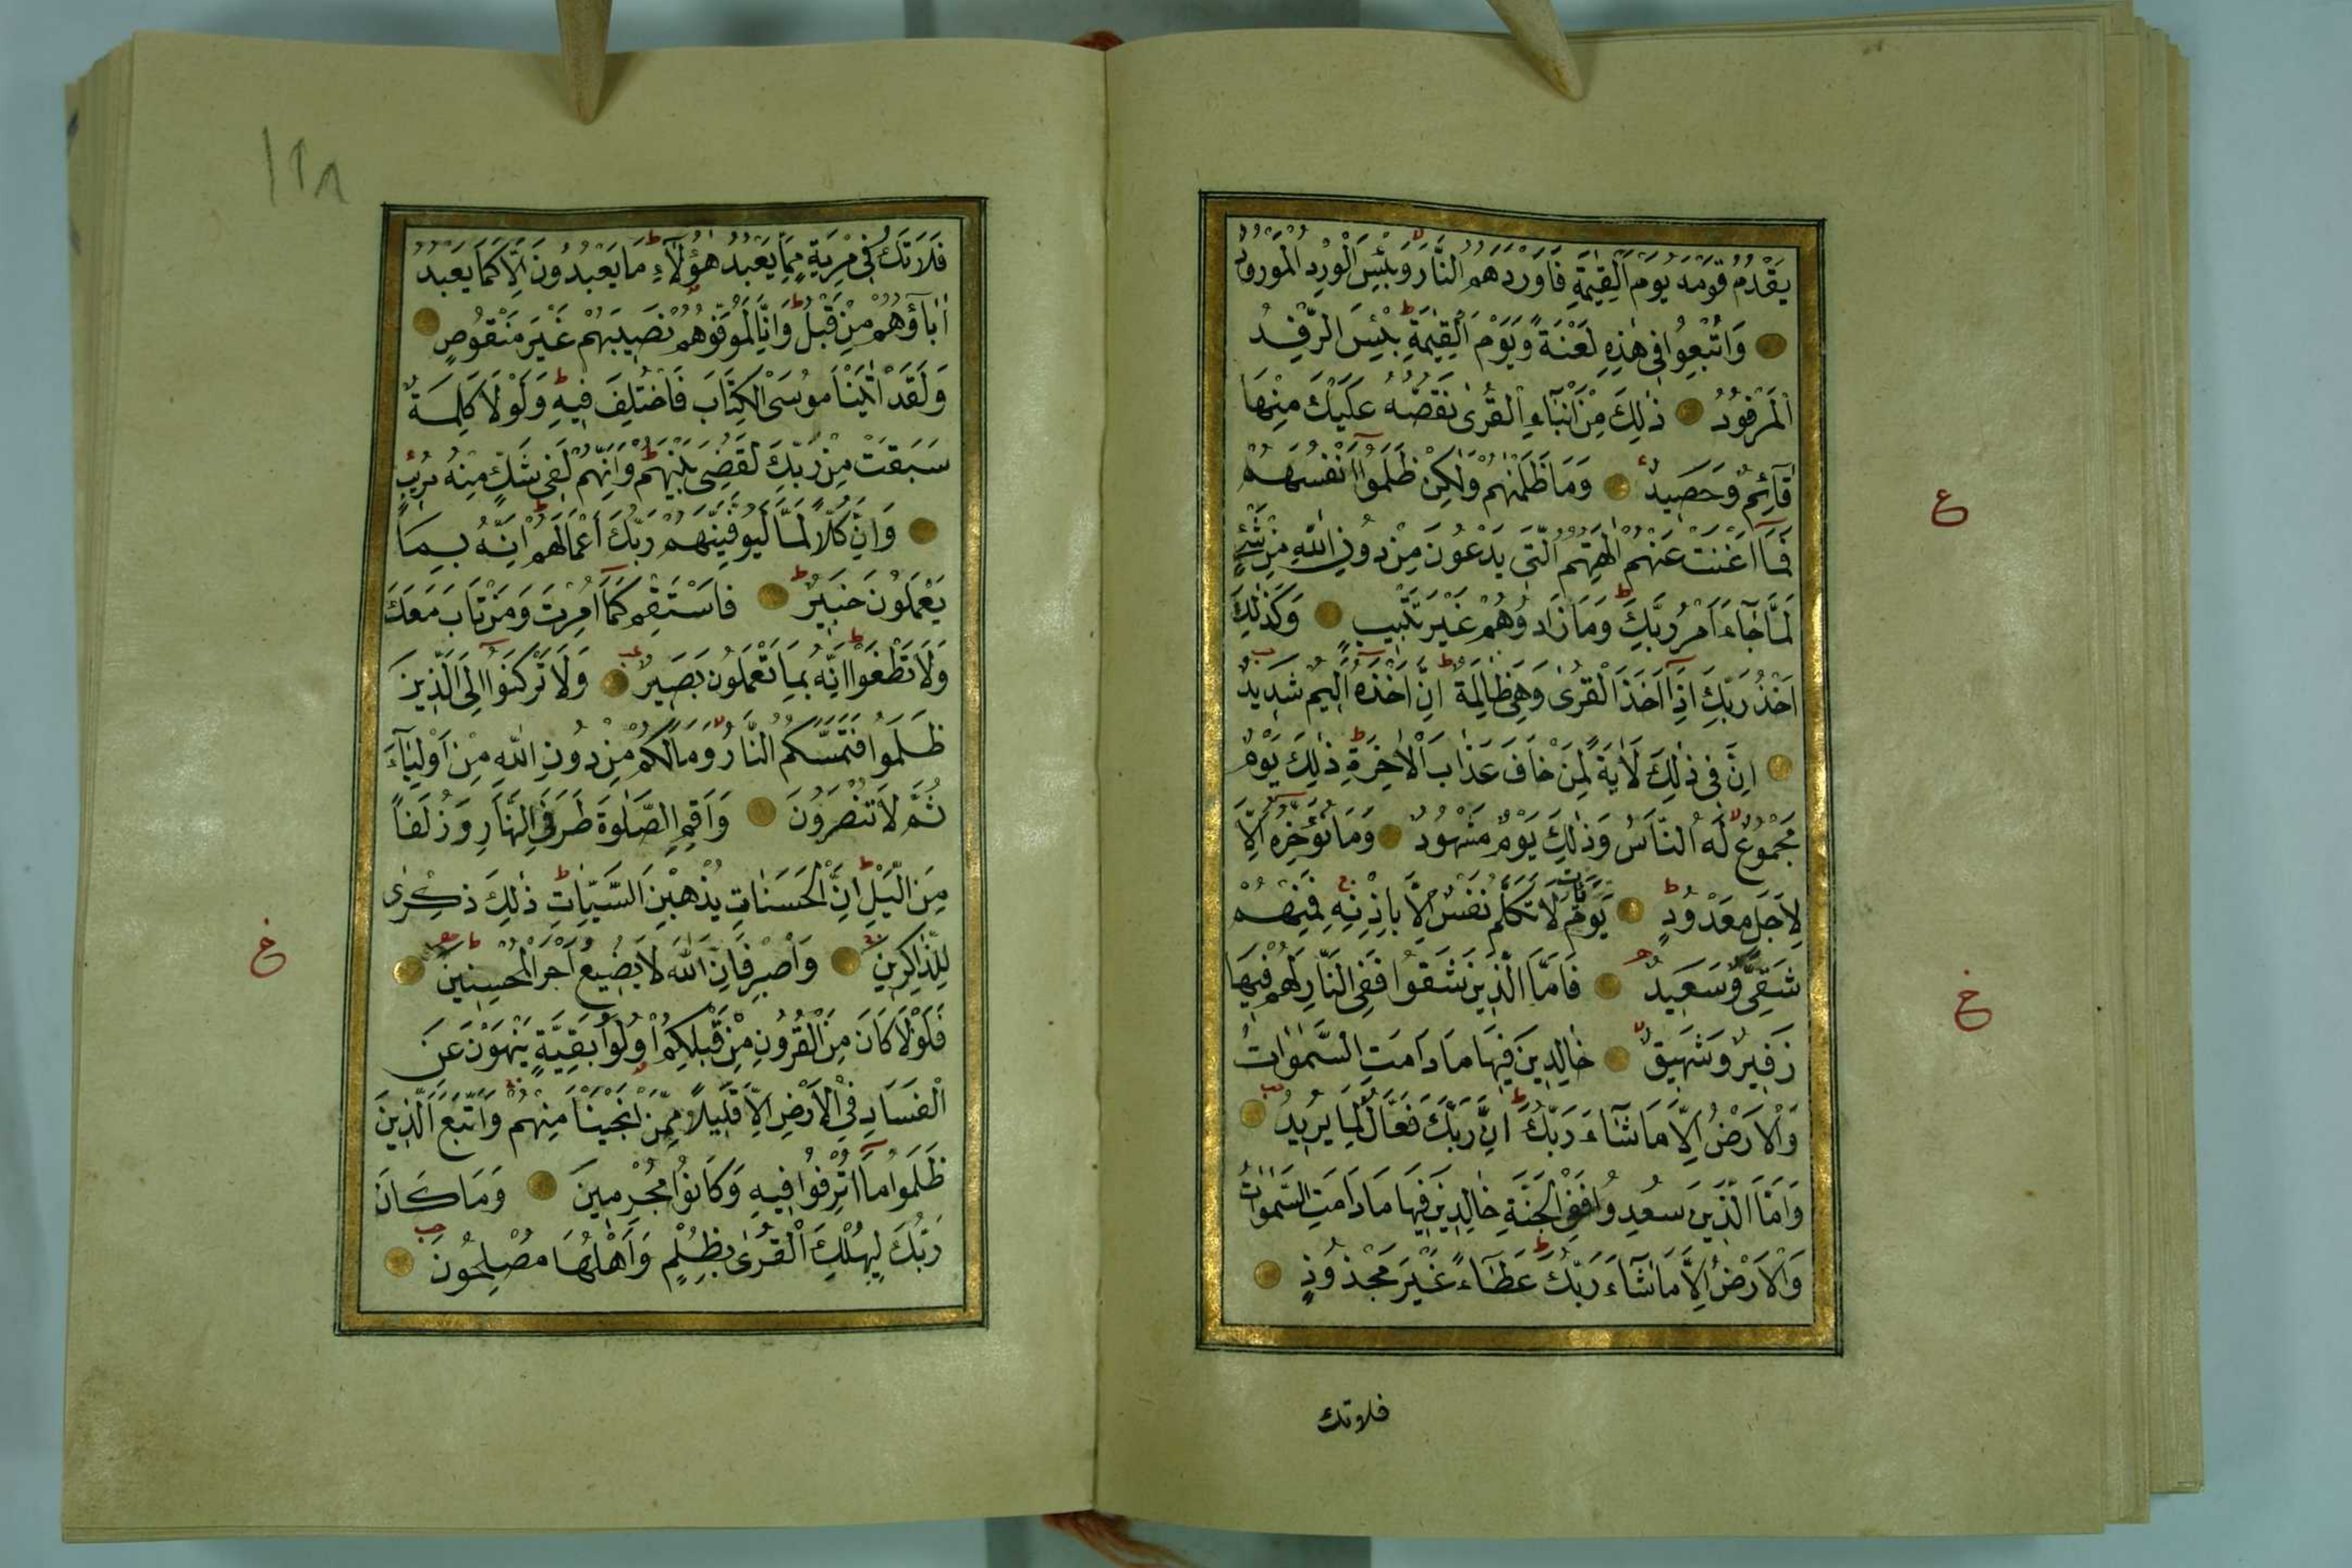 يَقْدُمُ قَوْمَهُ يَوْمَ الْقِيٰمَةِ فَاَوْرَدَهُمُ النَّارَ وَبِئْسَ الْوِرْدُ الْمَوْرُودُ
وَاُتْبِعُوا فِى هٰذِهِ لَعْنَةً وَيَوْمَ الْقِيٰمَةِ بِئْسَ الرِّفْدُ
الْمَرْفُودُ ذٰلِكَ مِنْ اَنْبَاءِ الْقُرٰى نَقُصُّهُ عَلَيْكَ مِنْهَا
قَآئِمٌ وَحَصِيدٌ وَمَا ظَلَمْنٰهُمْ وَلٰكِنْ ظَلَمُوا اَنْفُسَهُمْ
فَمَا اَغْنَتْ عَنْهُمْ اٰلِهَتُهُمُ الَّتِى يَدْعُونَ مِنْ دُونِ اللّٰهِ مِنْ شَىْءٍ
لَمَّا جَآءَ اَمْرُ رَبِّكَ وَمَا زَادُوهُمْ غَيْرَ تَتْبِيبٍ وَكَذٰلِكَ
اَخْذُ رَبِّكَ اِذَا اَخَذَ الْقُرٰى وَهِىَ ظَالِمَةٌ اِنَّ اَخْذَهُ اَلِيمٌ شَدِيدٌ
اِنَّ فِى ذٰلِكَ لَاٰيَةً لِمَنْ خَافَ عَذَابَ الْاٰخِرَةِ ذٰلِكَ يَوْمٌ
مَجْمُوعٌ لَهُ النَّاسُ وَذٰلِكَ يَوْمٌ مَشْهُودٌ وَمَا نُؤَخِّرُهُ اِلَّا
لِاَجَلٍ مَعْدُودٍ يَوْمَ يَأْتِ لَا تَكَلَّمُ نَفْسٌ اِلَّا بِاِذْنِهِ فَمِنْهُمْ
شَقِىٌّ وَسَعِيدٌ فَاَمَّا الَّذِينَ شَقُوا فَفِى النَّارِ لَهُمْ فِيهَا
زَفِيرٌ وَشَهِيقٌ خَالِدِينَ فِيهَا مَا دَامَتِ السَّمٰوَاتُ
وَالْاَرْضُ اِلَّا مَا شَآءَ رَبُّكَ اِنَّ رَبَّكَ فَعَّالٌ لِمَا يُرِيدُ
وَاَمَّا الَّذِينَ سُعِدُوا فَفِى الْجَنَّةِ خَالِدِينَ فِيهَا مَا دَامَتِ السَّمٰوَاتُ
وَالْاَرْضُ اِلَّا مَا شَآءَ رَبُّكَ عَطَآءً غَيْرَ مَجْذُوذٍ
فلاتك
ع
خ
١٢٨
فَلَا تَكُ فِى مِرْيَةٍ مِمَّا يَعْبُدُ هٰؤُلَاءِ مَا يَعْبُدُونَ اِلَّا كَمَا يَعْبُدُ
اٰبَآؤُهُمْ مِنْ قَبْلُ وَاِنَّا لَمُوَفُّوهُمْ نَصِيبَهُمْ غَيْرَ مَنْقُوصٍ
وَلَقَدْ اٰتَيْنَا مُوسَى الْكِتَابَ فَاخْتُلِفَ فِيهِ وَلَوْلَا كَلِمَةٌ
سَبَقَتْ مِنْ رَبِّكَ لَقُضِىَ بَيْنَهُمْ وَاِنَّهُمْ لَفِى شَكٍّ مِنْهُ مُرِيبٍ
وَاِنَّ كُلًّا لَمَّا لَيُوَفِّيَنَّهُمْ رَبُّكَ اَعْمَالَهُمْ اِنَّهُ بِمَا
يَعْمَلُونَ خَبِيرٌ فَاسْتَقِمْ كَمَا اُمِرْتَ وَمَنْ تَابَ مَعَكَ
وَلَا تَطْغَوْا اِنَّهُ بِمَا تَعْمَلُونَ بَصِيرٌ وَلَا تَرْكَنُوا اِلَى الَّذِينَ
ظَلَمُوا فَتَمَسَّكُمُ النَّارُ وَمَا لَكُمْ مِنْ دُونِ اللّٰهِ مِنْ اَوْلِيَآءَ
ثُمَّ لَا تُنْصَرُونَ وَاَقِمِ الصَّلٰوةَ طَرَفَىِ النَّهَارِ وَزُلَفًا
مِنَ الَّيْلِ اِنَّ الْحَسَنَاتِ يُذْهِبْنَ السَّيِّاٰتِ ذٰلِكَ ذِكْرٰى
لِلذَّاكِرِينَ وَاصْبِرْ فَاِنَّ اللّٰهَ لَا يُضِيعُ اَجْرَ الْمُحْسِنِينَ
فَلَوْلَا كَانَ مِنَ الْقُرُونِ مِنْ قَبْلِكُمْ اُولُوا بَقِيَّةٍ يَنْهَوْنَ عَنِ
الْفَسَادِ فِى الْاَرْضِ اِلَّا قَلِيلًا مِمَّنْ اَنْجَيْنَا مِنْهُمْ وَاتَّبَعَ الَّذِينَ
ظَلَمُوا مَا اُتْرِفُوا فِيهِ وَكَانُوا مُجْرِمِينَ وَمَا كَانَ
رَبُّكَ لِيُهْلِكَ الْقُرٰى بِظُلْمٍ وَاَهْلُهَا مُصْلِحُونَ
خ